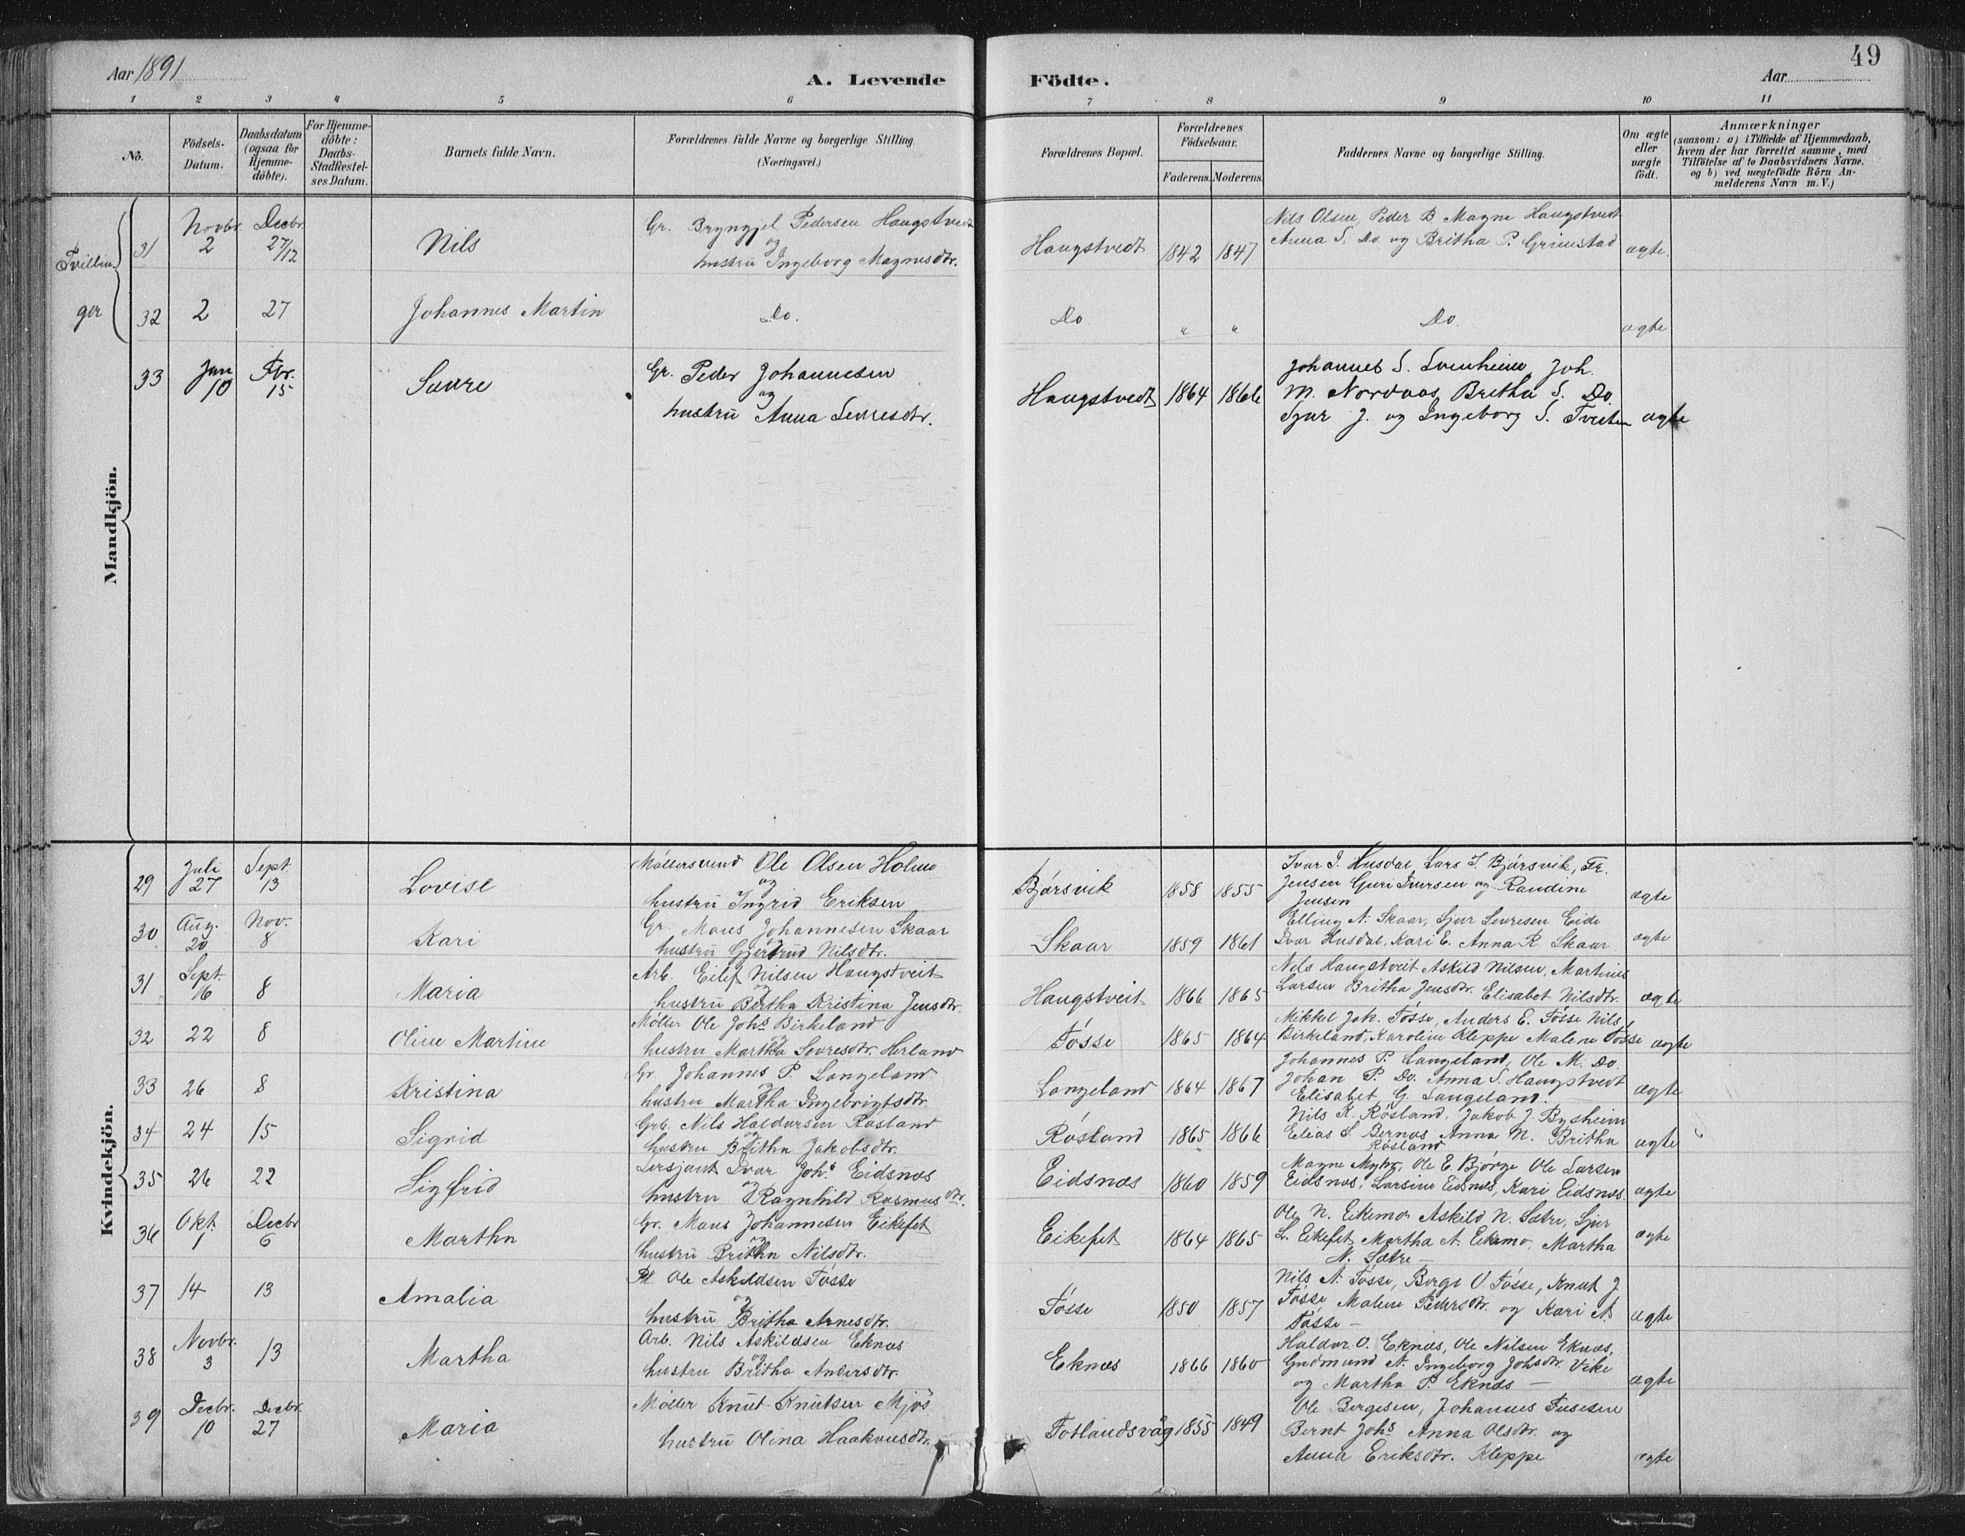 49
Aar 1891
A. Levende
Födte.
Aar
1 2 3 4 5 6 7 8 9 10 11
No.
Födsels-Datum.
Daabsdatum (ogsaa for Hjemme-döbte).
For Hjemme-döbte: Daabs-Stadfæstel-ses Datum.
Barnets fulde Navn.
Forældrenes fulde Navne og borgerlige Stilling.
(Næringsvei.)
Forældrenes Bopæl.
Forældrenes Födselsaar.
Faderens. Moderens.
Faddernes Navne og borgerlige Stilling.
Om ægte eller uægte födt.
Anmærkninger
(saasom: a) i Tilfælde af Hjemmedaab,
hvem der har forrettet samme, med
Tilföielse af to Daabsvidners Navne.
og b) ved uægtefödte Börn An-
melderens Navn m. V.)
Tvillin
ger
Mandkjön.
31 Novbr 2 Decbr 27/12 Nils
Gr. Bryngjel Pedersen Haugstvedt
og
hustru Ingeborg Magnesdtr.
Haugstvedt 1842 1847
Nils Olsen, Peder B Magne Haugstvedt
Anna S. Do og Britha P. Grimstad
ægte.
32 2 27 Johannes Martin Do. Do " " Do. ægte
33 Jun 10 15 Sævre
Gr. Peder Johannesen
og
hustru Anna Sevresdtr.
Haugstvedt 1864 1866
Johannes S. Svenheim Joh.
M. Nordaas Britha S. Do
Sjur J. og Ingeborg S. Tveiten ægte
Kvindekjön.
29 Juli 27 Sept 13 Lovise
Möllersvend Ole Olsen Holme
og
hustru Ingrid Eriksen
Bjørsvik 1858 1855
Ivar I. Husdal, Lars I. Bjørsvik, Fr.
Jensen Guri Iversen og Randine
Jensen
ægte
30 Aug. 20 Nov. 8 Kari
Gr. Mons Johannesen Skaar
hustru Gjertrud Nilsdtr.
Skaar 1859 1861
Elling N. Skaar, Sjur Sevresen Eide
Ivar Husdal, Kari E. Anna R. Skaar
ægte
31 Sept 16 8 Maria
Arb. Eilef Nilsen Haugstveit
og
hustru Britha Kristina Jensdtr.
Haugstveit 1866 1865
Nils Haugstveit Askild Nilsen, Martinus
Larsen Britha Jensdtr. Elisabet Nilsdtr.
ægte
32 22 8 Oline Martine
Møller Ole Johs Birkeland
og
hustru Martha Sevresdtr. Herland
Fosse 1865 1864
Mikkel Joh. Fosse, Anders E. Fosse Nils
Birkeland, Karoline Kleppe Malene Fosse
ægte
33 26 8 Kristina
Gr. Johannes P. Langeland
og
hustru Martha Ingebrigtsdtr.
Langeland 1864 1867
Johannes P. Langeland, Ole M. Do
Johan P. Do. Anna S. Haugstvedt
Elisabet G. Langeland.
ægte
34 24 15 Sigrid
Grb. Nils Haldorsen Røsland
og
hustru Britha Jakobsdtr.
Røsland 1865 1866
Nils K. Røsland, Jakob J. Bysheim
Elias S. Bernes Anna N. Britha
Røsland
ægte
35 26 22 Sigfrid
Sersjant Ivar Johs Eidsnæs
og
hustru Ragnhild Rasmusdtr.
Eidsnæs 1860 1859
Magne Myhr, Ole E. Bjørge Ole Larsen
Eidsnes, Larsine Eidsnes, Kari Eidsnæs
ægte
36 Okt. 1 Decbr 6 Martha
Gr. Mons Johannesen Eikefet
og
hustru Britha Nilsdtr.
Eikefet 1864 1865
Ole N. Eikemo Askild N. Sætre, Sjur
L. Eikefet, Martha A. Eikemo, Martha
N. Sætre
ægte
37 14 13 Amalia
Pl. Ole Askildsen Fosse
og
hustru Britha Arnesdtr.
Fosse 1850 1857
Nils A. Fosse, Berge O Fosse, Knut J.
Fosse Malene Pedersdtr. og Kari A
Fosse
ægte
38 Novbr. 3 13 Martha
Arb. Nils Askildsen Eknæs
og
hustru Britha Andersdtr.
Eknæs 1866 1860
Haldor O. Eknæs, Ole Nilsen Eknæs,
Gudmund A. Ingeborg Johsdtr. Vike
og Martha P. Eknæs
ægte
39 Decbr. 10 Decbr. 27 Maria
Møller Knut Knutsen Mjøs
hustru Olina Haakonsdtr.
Fotlandsvåg 1855 1849
Ole Bergesen, Johannes
Bernt Johs Anna Olsdtr. og
Anna Eriksdtr. Kleppe
ægte